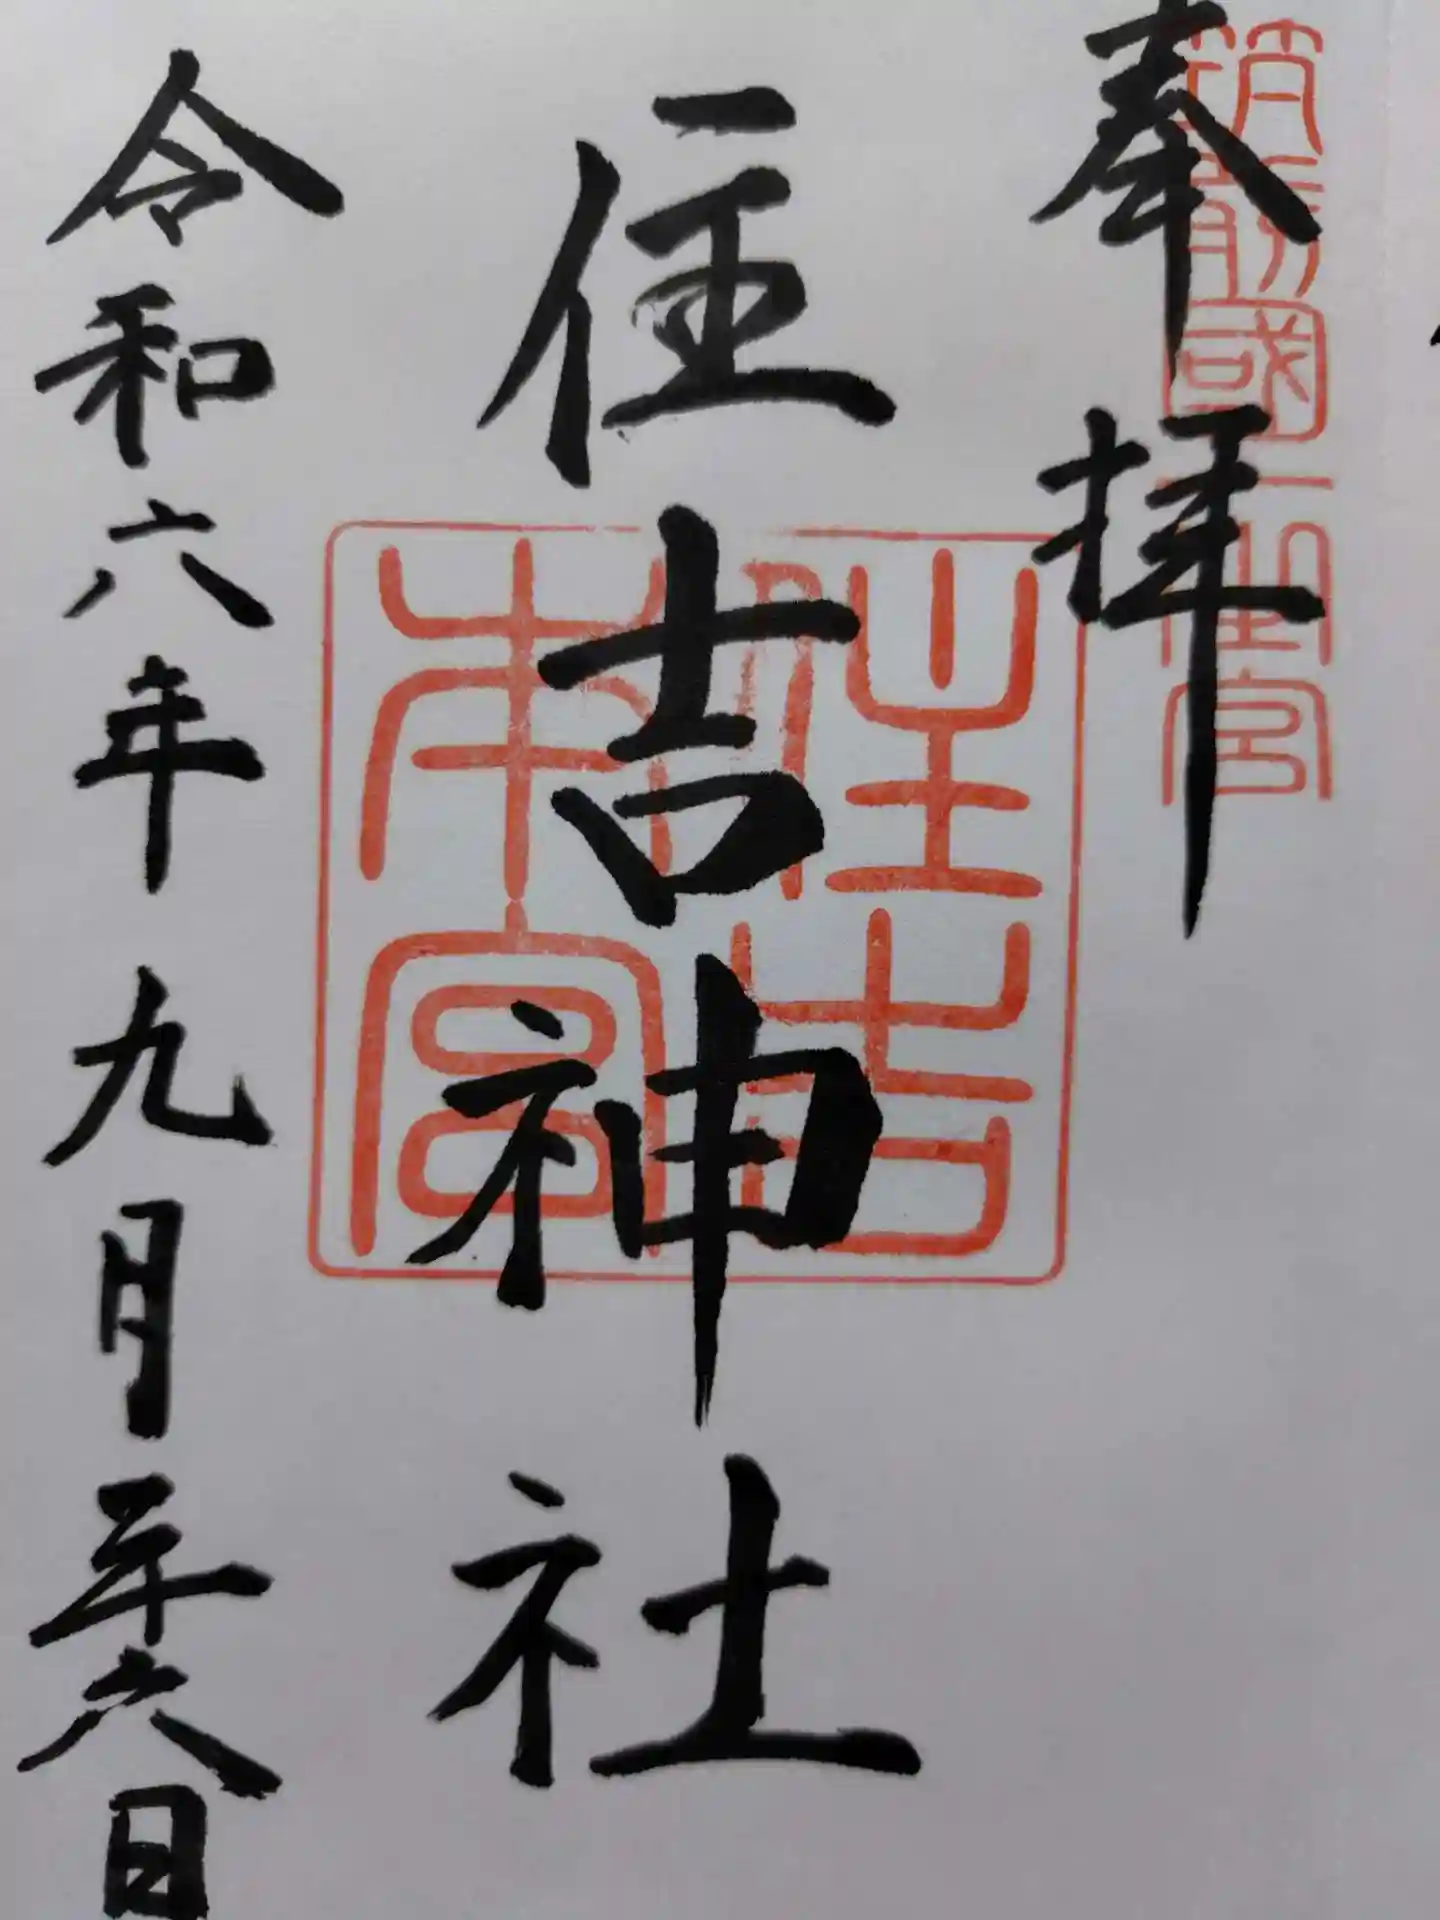 筑前國一之宮
奉拝
住吉神社
住吉本宮
令和六年九月二十六日